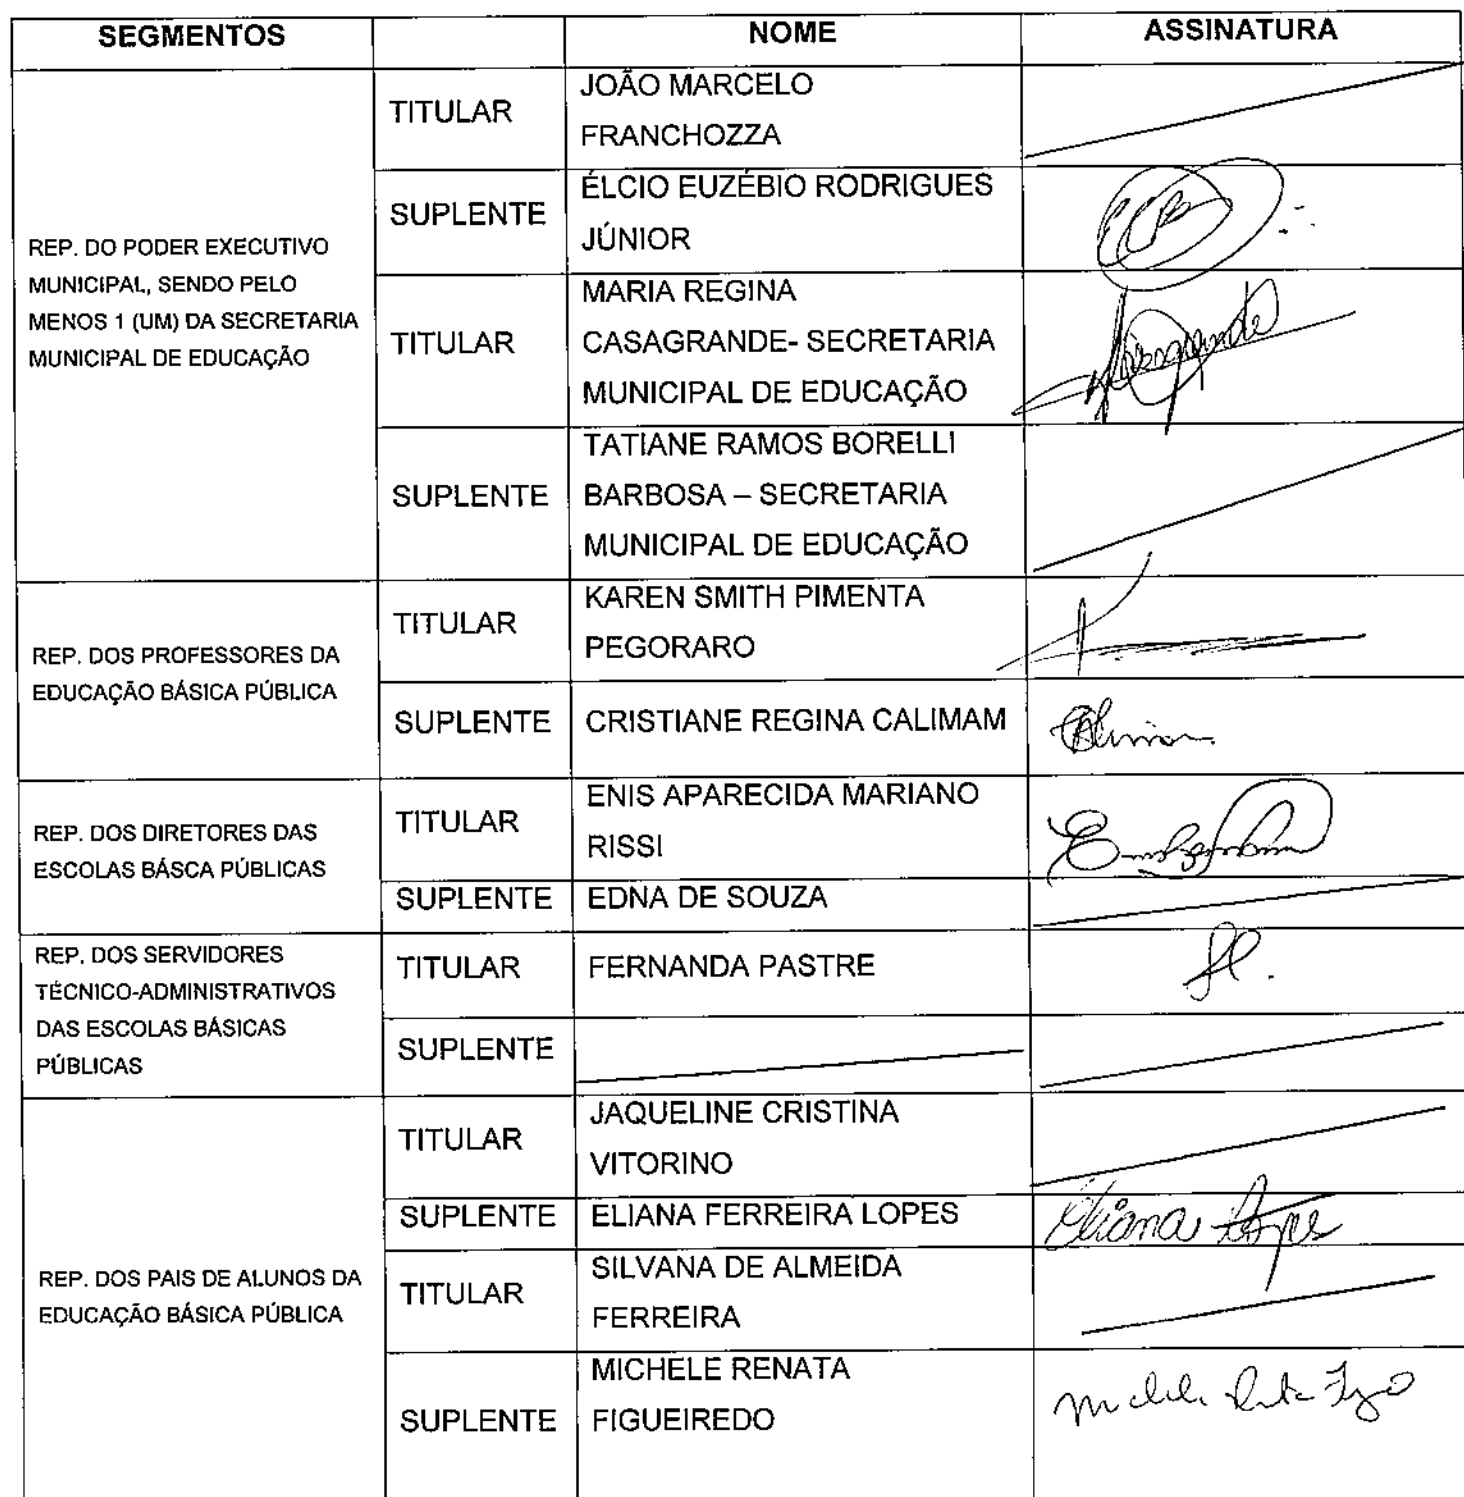 SEGMENTOS
NOME
ASSINATURA
REP. DO PODER EXECUTIVO
MUNICIPAL, SENDO PELO
MENOS 1 (UM) DA SECRETARIA
MUNICIPAL DE EDUCAÇÃO
TITULAR
JOÃO MARCELO
FRANCHOZZA
SUPLENTE
ÉLCIO EUZÉBIO RODRIGUES
JÚNIOR
TITULAR
MARIA REGINA
CASAGRANDE- SECRETARIA
MUNICIPAL DE EDUCAÇÃO
SUPLENTE
TATIANE RAMOS BORELLI
BARBOSA – SECRETARIA
MUNICIPAL DE EDUCAÇÃO
REP. DOS PROFESSORES DA
EDUCAÇÃO BÁSICA PÚBLICA
TITULAR
KAREN SMITH PIMENTA
PEGORARO
SUPLENTE
CRISTIANE REGINA CALIMAM
REP. DOS DIRETORES DAS
ESCOLAS BÁSCA PÚBLICAS
TITULAR
ENIS APARECIDA MARIANO
RISSI
SUPLENTE
EDNA DE SOUZA
REP. DOS SERVIDORES
TÉCNICO-ADMINISTRATIVOS
DAS ESCOLAS BÁSICAS
PÚBLICAS
TITULAR
FERNANDA PASTRE
SUPLENTE
REP. DOS PAIS DE ALUNOS DA
EDUCAÇÃO BÁSICA PÚBLICA
TITULAR
JAQUELINE CRISTINA
VITORINO
SUPLENTE
ELIANA FERREIRA LOPES
Eliana Lopes
TITULAR
SILVANA DE ALMEIDA
FERREIRA
SUPLENTE
MICHELE RENATA
FIGUEIREDO